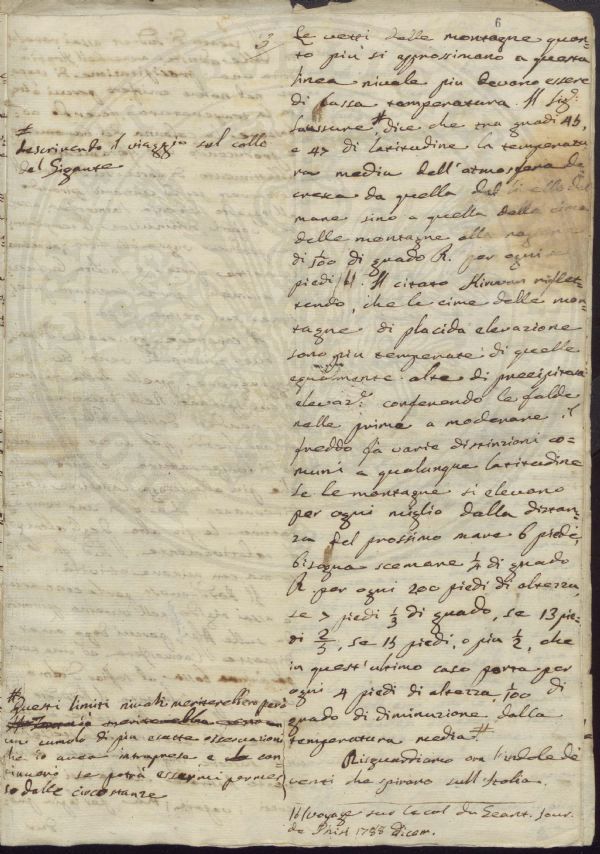 6
3
Le vette delle montagne quan-
to più si approssimano a questa
linea nivale più devono essere
di bassa temperatura. Il Sig.
Saussure # dice che tra gradi 45,
e 47 di latitudine la temperatu
ra media dell'atmosfera de
cresca da quella del
mare sino a quella delle cime
delle montagne alla
di 1/100 di grado R. per ogni
piedi (b). Il citato Kirwan riflet-
tendo, che le cime delle mon-
tagne di placida elevazione
sono più temperate di quelle
egualmente alte di precipitosa
elevaz.e conferendo le falde
nelle prime a moderare il
freddo fa varie distinzioni co-
muni a qualunque latitudine
se le montagne si elevano
per ogni miglio dalla distan-
za del prossimo mare 6 piedi,
bisogna scemare 1/4 di grado
R per ogni 200 piedi di altezza,
se 7 piedi 1/3 di grado, se 13 pie-
di 2/5, se 15 piedi, o più 1/2, che
in quest'ultimo caso porta per
ogni 4 piedi di altezza, 1/100 di
grado di diminuzione dalla
temperatura media. #
Risguardiamo ora l'indole de
venti che spirano sull'Italia.
(b) Voyage sur le col du Geant. Jour.
de Phis. 1788 Dicem.
#
descrivendo il viaggio sul colle
del Gigante
# Questi limiti nivali meriterebbero però
un cumulo di più esatte osservazioni
che io avea intrapresa e con
tinuerò se potrà essermi permes
so dalle circostanze